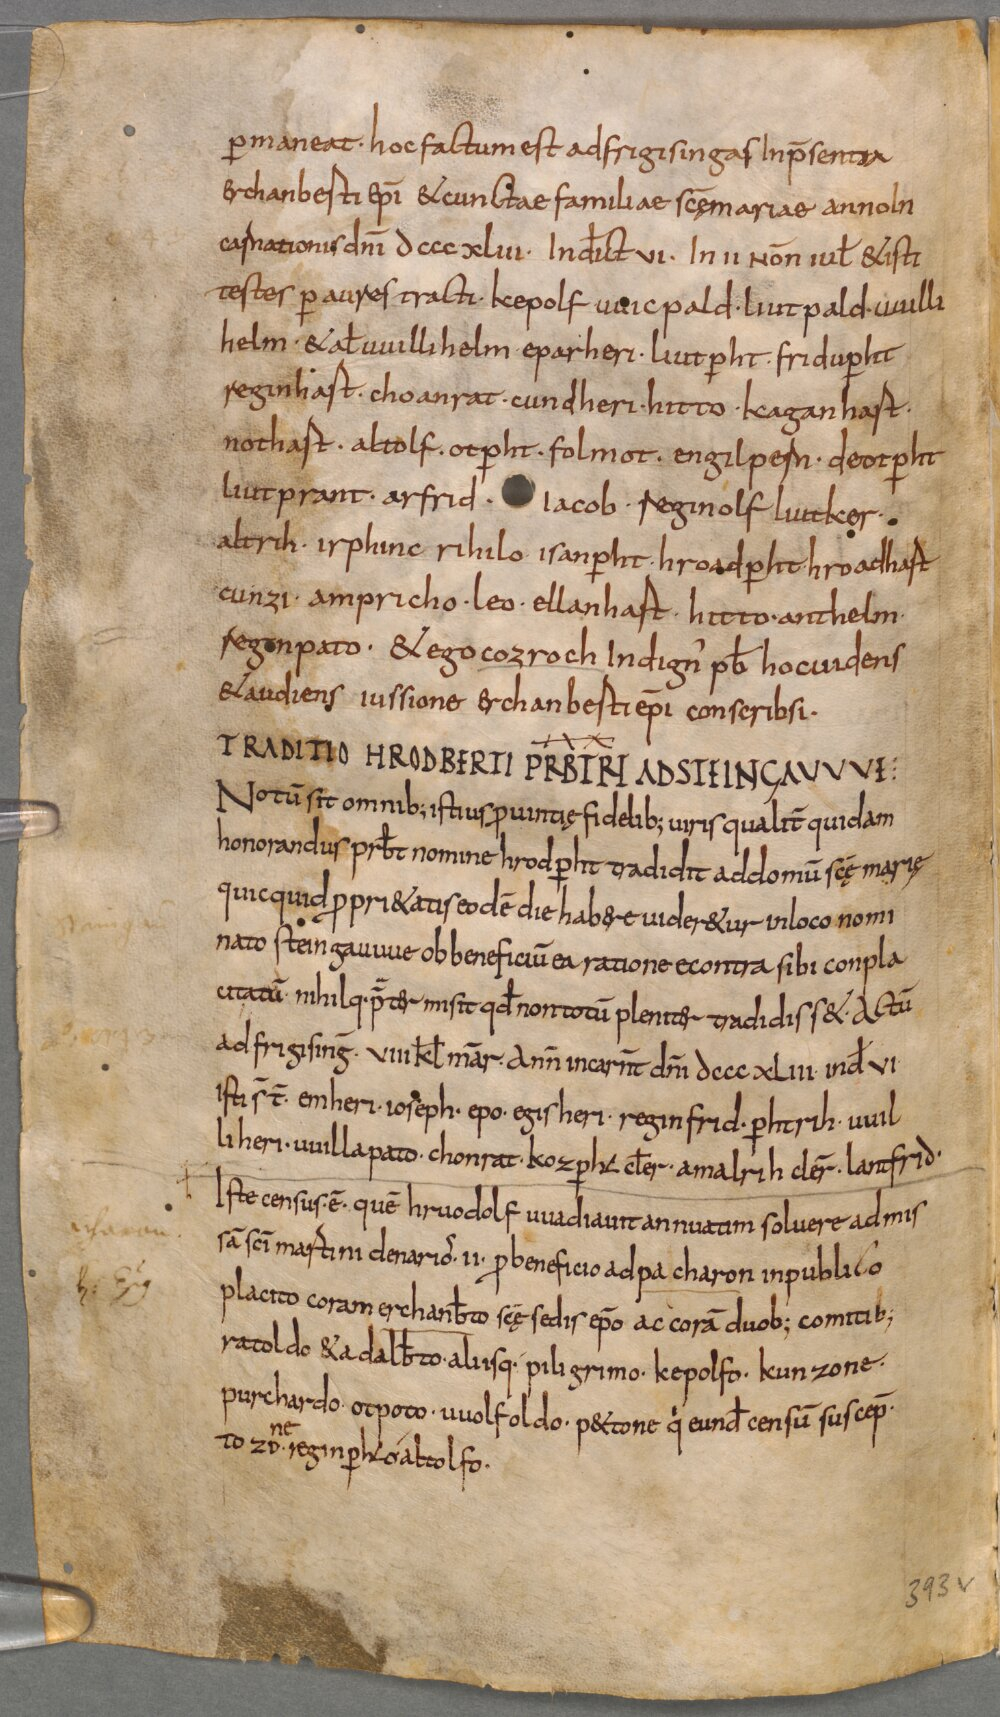 ꝑmaneat· hoc factum est adfrigisingas Inp̄sentia
erchanberti ep̄i &cunctae familiae scęmariae annoIn
carnationis dn̄i dccc xliii· Indict vi· In ii non̄ iul̄ &isti
testes ꝑ aures tracti· kepolf uuicpald· liutpald· uuilli
helm· &al̄ uuillihelm eparheri· liutꝑht· friduꝑht
reginhart· choanrat· cundheri· hitto· kaganhart·
nothart· altolf· otꝑht· folmot· engilpern· deotꝑht
liutprant· arfrid· Iacob· reginolf liutker·
altrih· irphinc rihilo isanꝑht· hroadꝑht· hroadhart
cunzi· ampricho· leo· ellanhart· hitto· anthelm·
reginpato· &ego cozroh Indign' pb̄ hocuidens
&audiens iussione erchanberti ep̄i conscribsi·
TRADITIO HRODBERTI PRB̄TRI ADSTEINGAUUUE:
Notū sit omnib; istius ꝓuintię fidelib; uiris qualit̄ quidam
honorandus prb̄t nomine hrodꝑht tradidit addomū scę marię
quicquid ꝓpri&atis eodē die habere uider&ur inloco nomi
nato steingauuue obbeneficiū ea ratione econtra sibi conpla
citatū· nihilq· p̄ter misit qd̄ nontotū pleniter tradidiss&· Actū
adfrigisinḡ· viii kl̄ mār· Ann̄ incarn̄t dn̄i dccc xLiii· ind̄ vi·
isti s̄ t̄· emheri· ioseph· epo· egisheri· reginfrid· ꝑhtrih· uuil
liheri· uuillapato· chonrat· kozꝑht cl̄er· amalrih cler̄· lantfrid·
Iste census· ē· quē hruodolf uuadiauit annuatim soluere admis
sā sc̄i martini denarios· ii· ꝓbeneficio adpacharon inpublico
placito coram erchanb̄to scę sedis ep̄o ac corā duob; comitib;
ratoldo &adalb̄to· aliisq· piligrimo· kepolfo· kunzone·
purchardo· otpoto· uuolfoldo· p&tone q' eund̄ censū suscep̄·
to zone· reginꝑhto altolfo·
393v